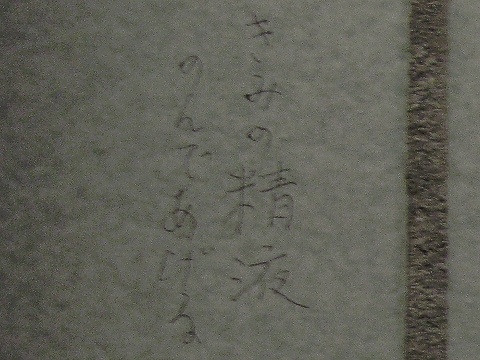 きみの精液
のんであげる